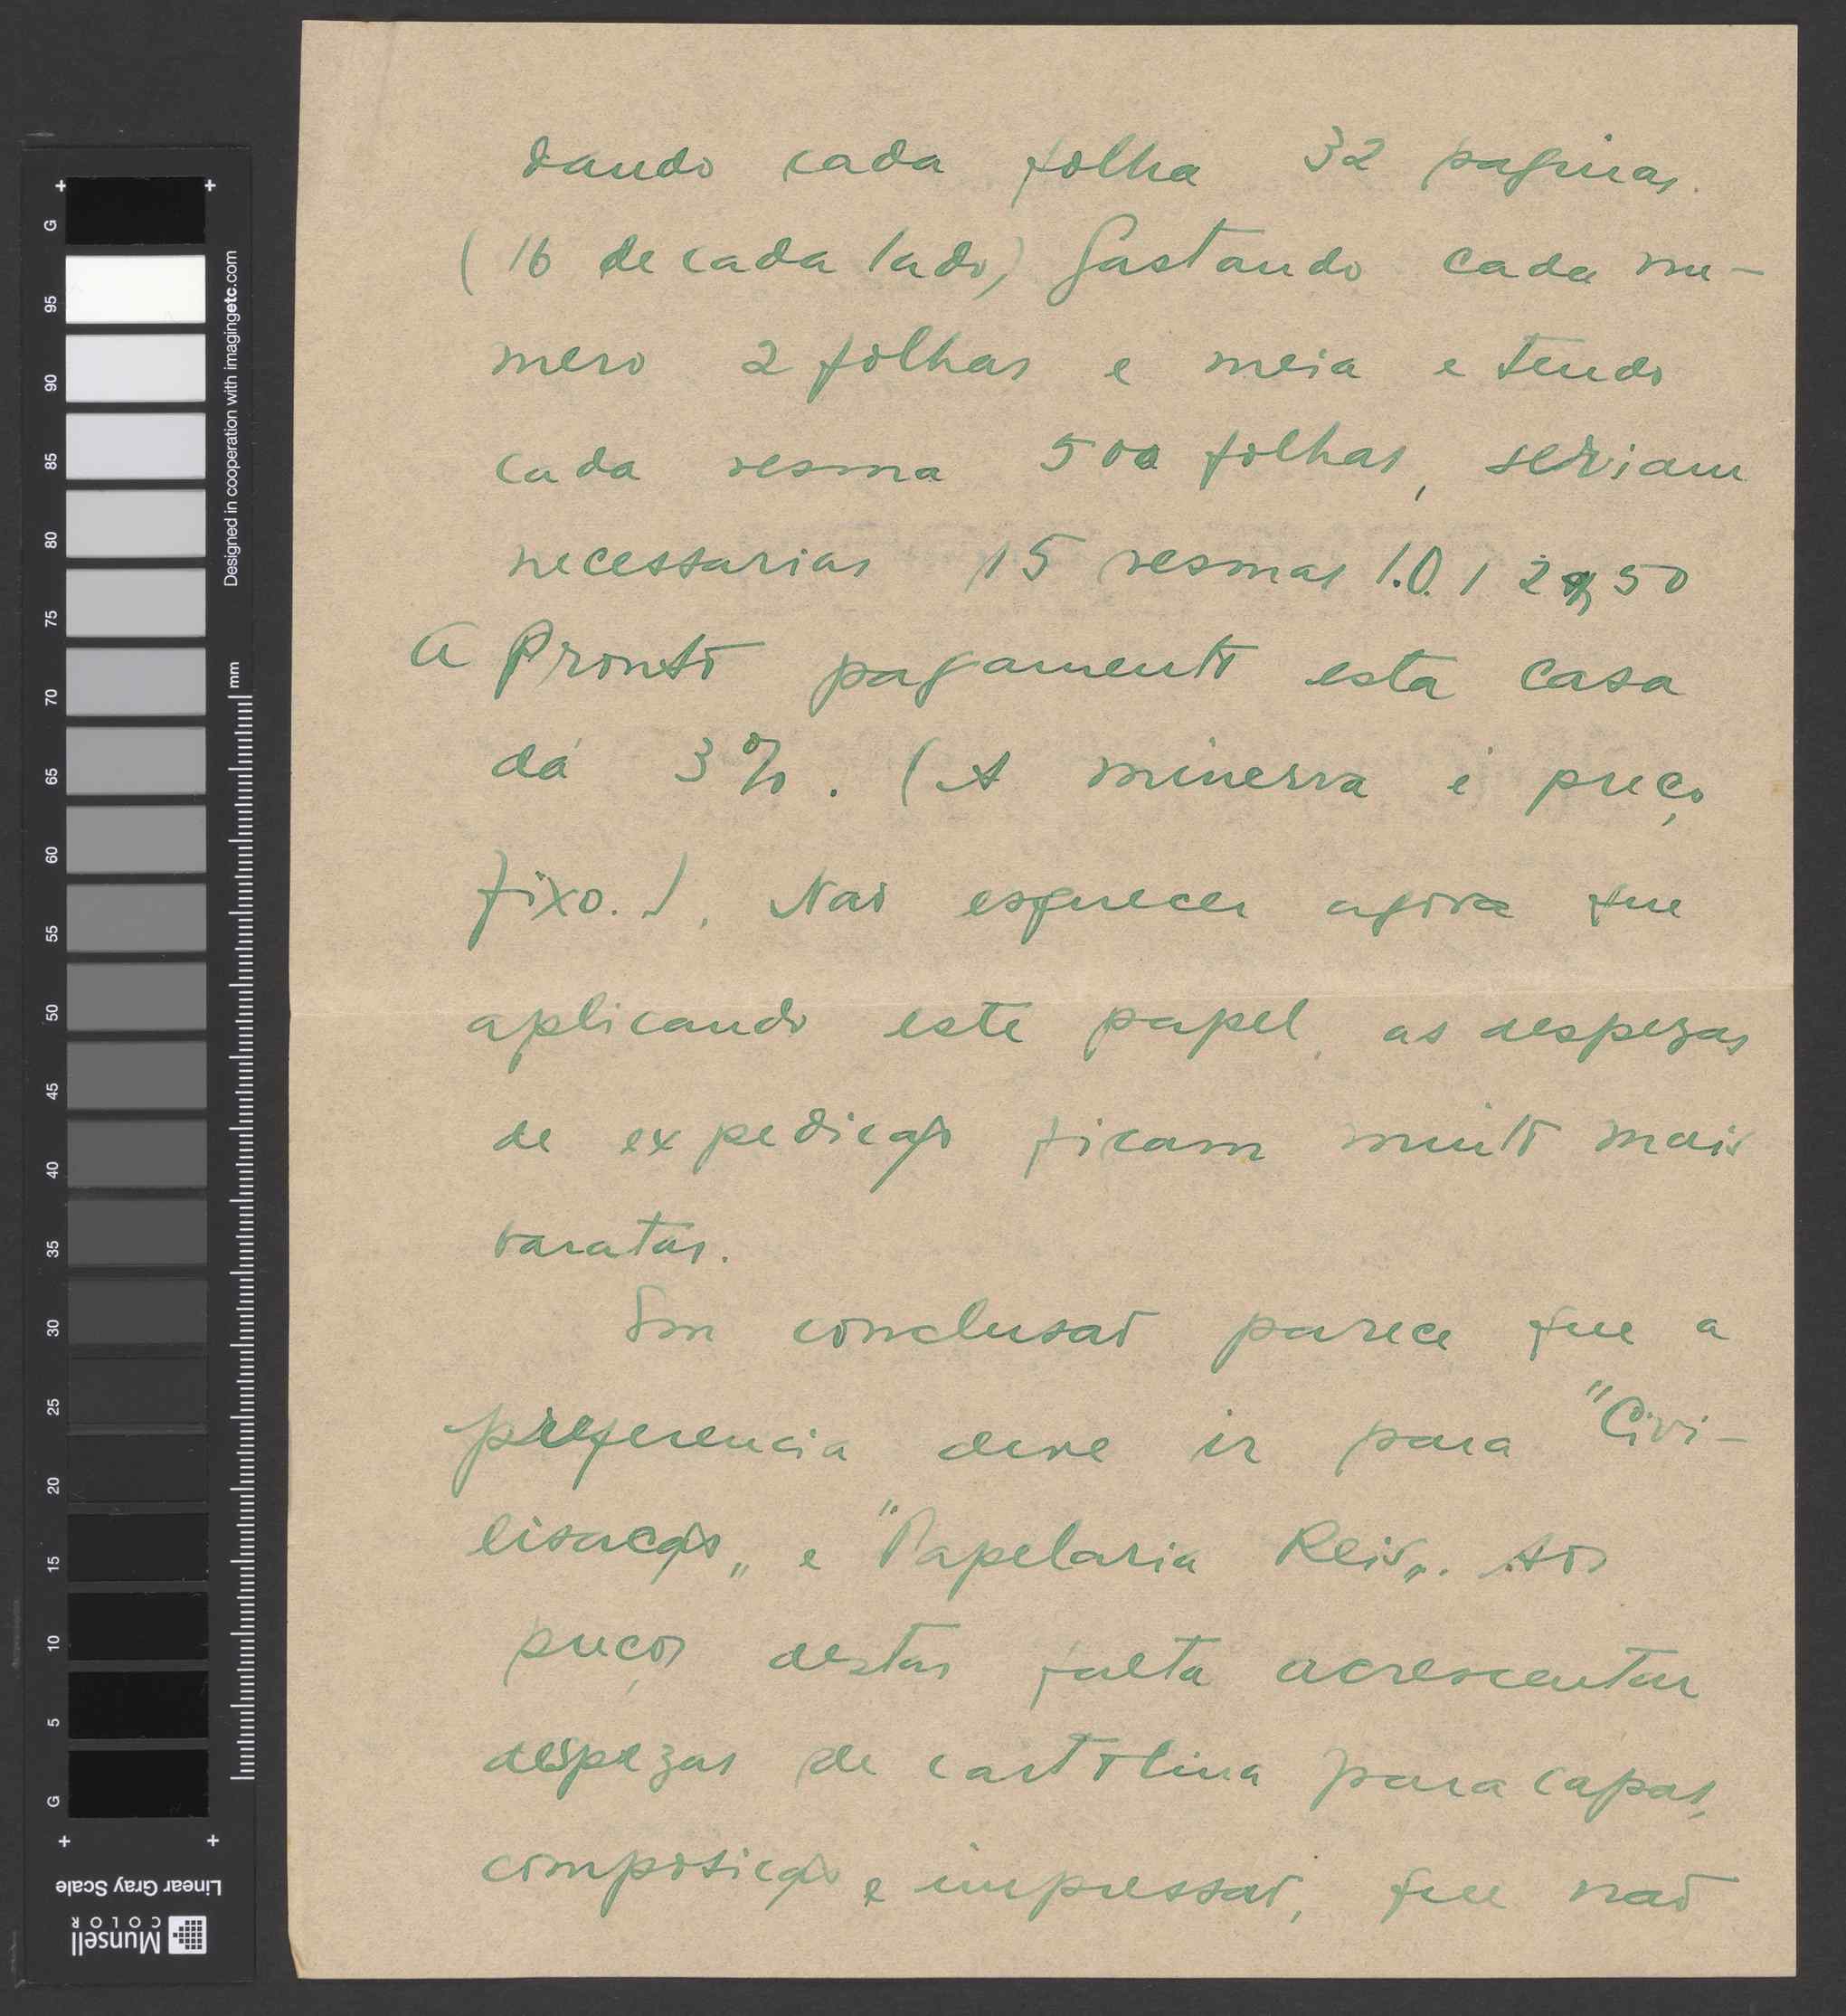 dando cada folha 32 paginas.
(16 de cada lado) Gastando cada nu-
mero 2 folhas e meia e tendo
cada resma 500 folhas, seriam
necessarias 15 resmas 1.012$50
a Pronto pagamento esta casa
dá 3%. (A minerva é preço
fixo.). Não esquecer agora que
aplicando este papel, as despezas
de expedição ficam muito mais
baratas.
Em conclusão parece que a
preferencia deve ir para "Civi-
lisação„ e "Papelaria Reis„. Aos
preços destas falta acrescentar
despezas de cartolina para capas,
composição e impressão, que não
G
95
90
85
80
75
70
65
60
55
50
45
40
35
30
25
20
15
10
5
G
mm
Designed in cooperation with imagingetc.com
Linear Gray Scale
Munsell
COLOR